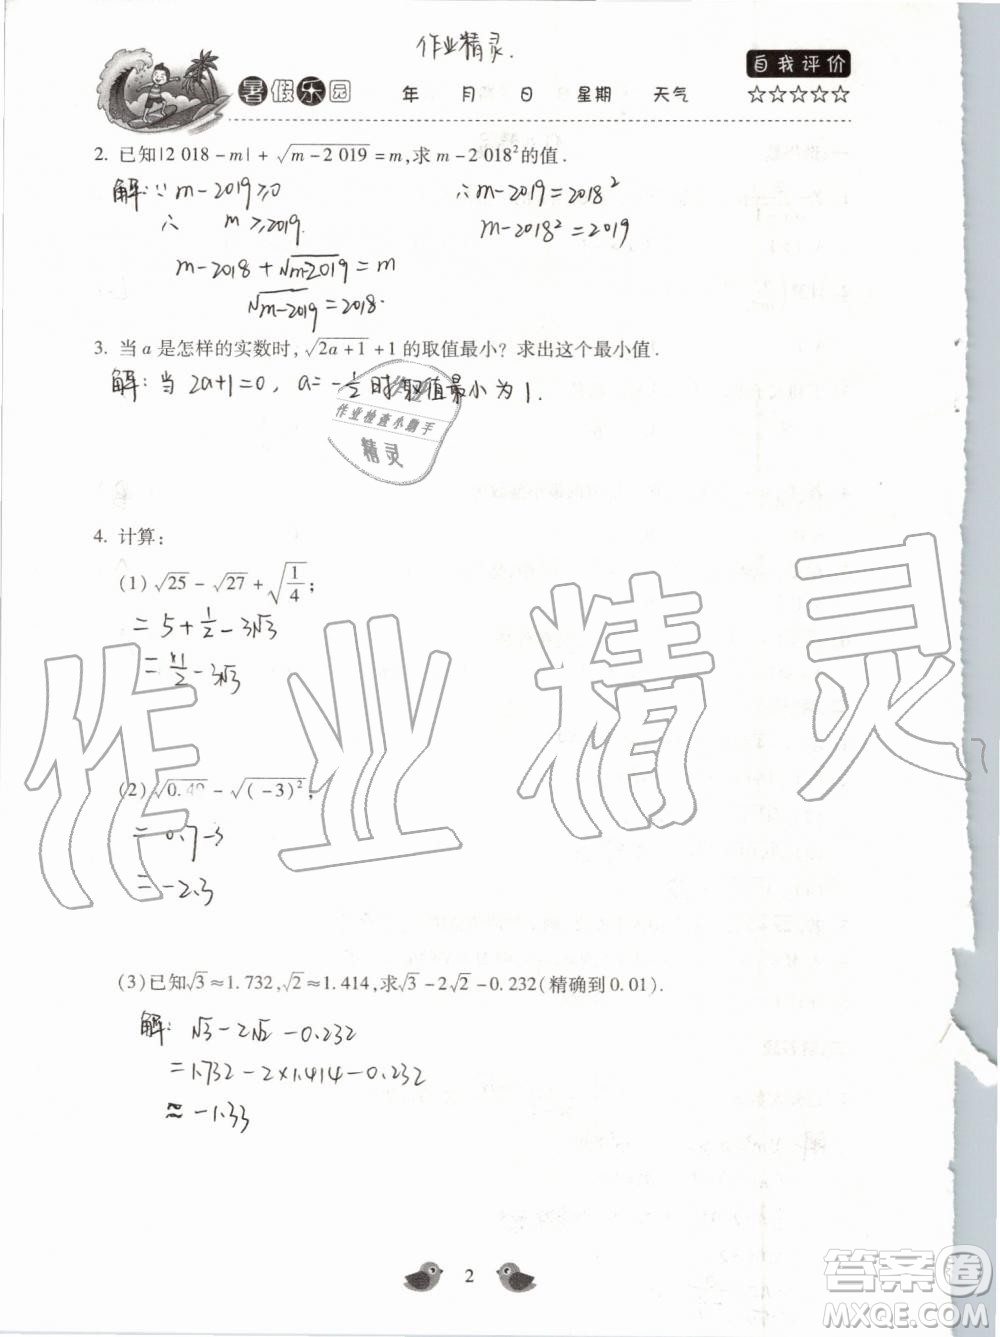 作业精灵.
自我评价
暑假乐园 年 月 日 星期 天气 ☆☆☆☆☆
2. 已知|2 018-m|+√(m-2 019)=m,求 m-2 018²的值.
解:∵m-2019≥0
∴ m≥2019.
m-2018+√(m-2019)=m
√(m-2019)=2018.
∴m-2019=2018²
m-2018²=2019
3. 当 a 是怎样的实数时,√(2a+1)+1 的取值最小?求出这个最小值.
解:当 2a+1=0, a=-1/2时取值最小为1.
作业
作业检查小助手
精灵
4. 计算:
(1)√25-√27+√(1/4);
=5+1/2-3√3
=11/2-3√3
(2)√0.49-√((-3)²);
=0.7-3
=-2.3
(3)已知√3≈1.732,√2≈1.414,求√3-2√2-0.232(精确到 0.01).
解:√3-2√2-0.232
=1.732-2×1.414-0.232
≈-1.33
作业精灵
2
答案圈
MXQE.COM